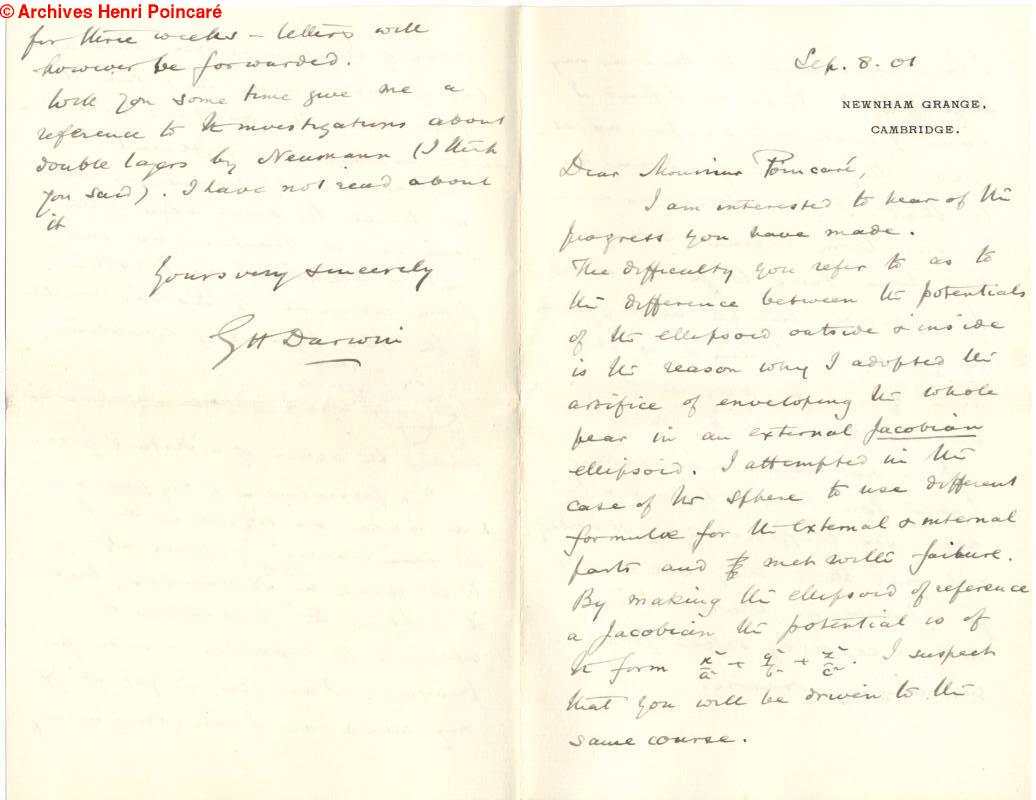 © Archives Henri Poincaré
for three weeks – letters will
however be forwarded.
Will you some time give me a
reference to the investigations about
double layers by Neumann (I think
you said). I have not read about
it
Yours very sincerely
G H Darwin
Sep. 8. 01
NEWNHAM GRANGE,
CAMBRIDGE.
Dear Monsieur Poincaré,
I am interested to hear of the
progress you have made.
The difficulty you refer to as to
the difference between the potentials
of the ellipsoid outside & inside
is the reason why I adopted the
artifice of enveloping the whole
pear in an external Jacobian
ellipsoid. I attempted in the
case of the sphere to use different
formulae for the external & internal
parts and met with failure.
By making the ellipsoid of reference
a Jacobian the potential is of
the form x²/a² + y²/b² + z²/c². I suspect
that you will be driven to the
same course.